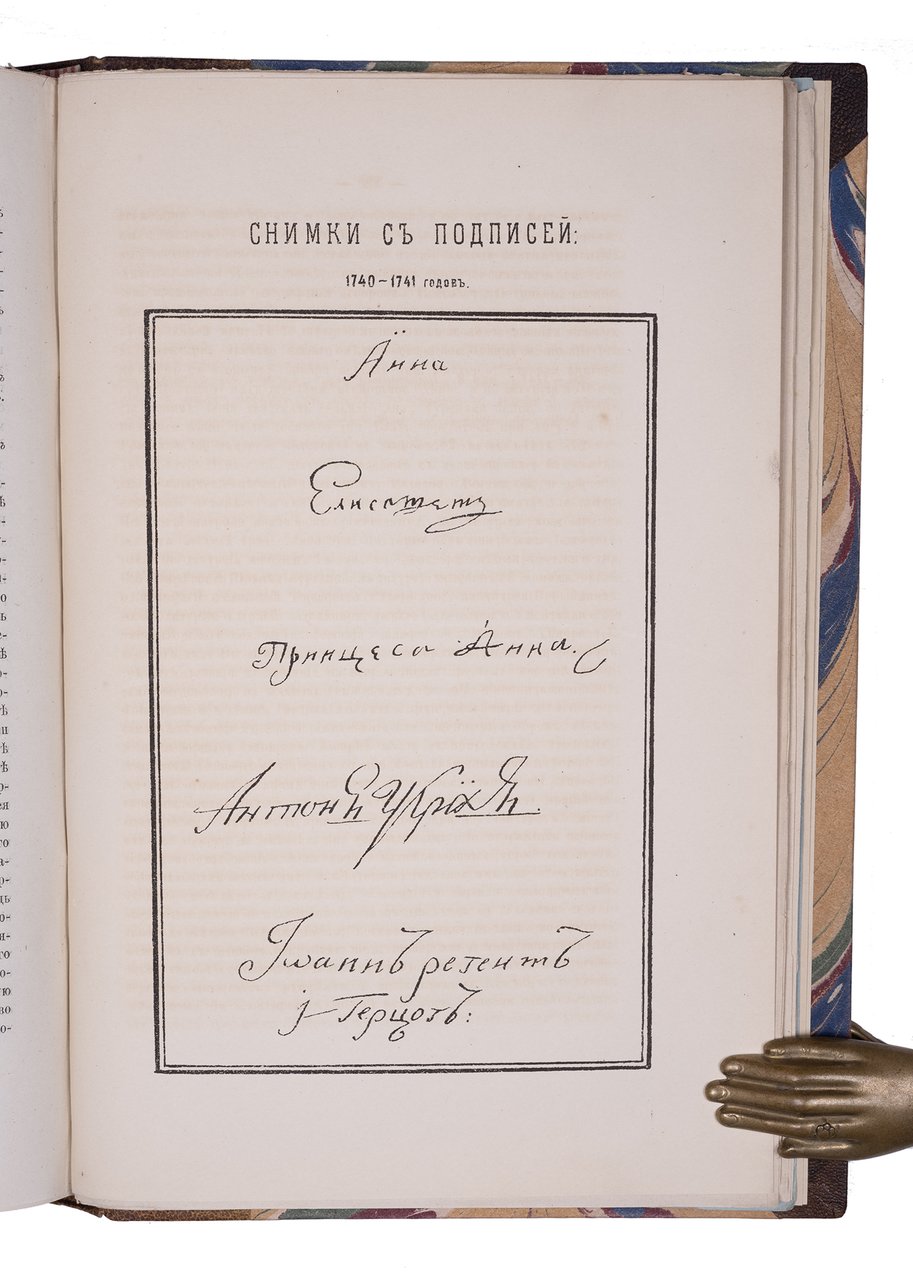 СНИМКИ СЪ ПОДПИСЕЙ:
1740–1741 годовъ.
Анна
Елисаветъ
Принцеса Анна.
Антонъ Улрiхъ.
Iоаннъ регентъ
i Герцогъ: